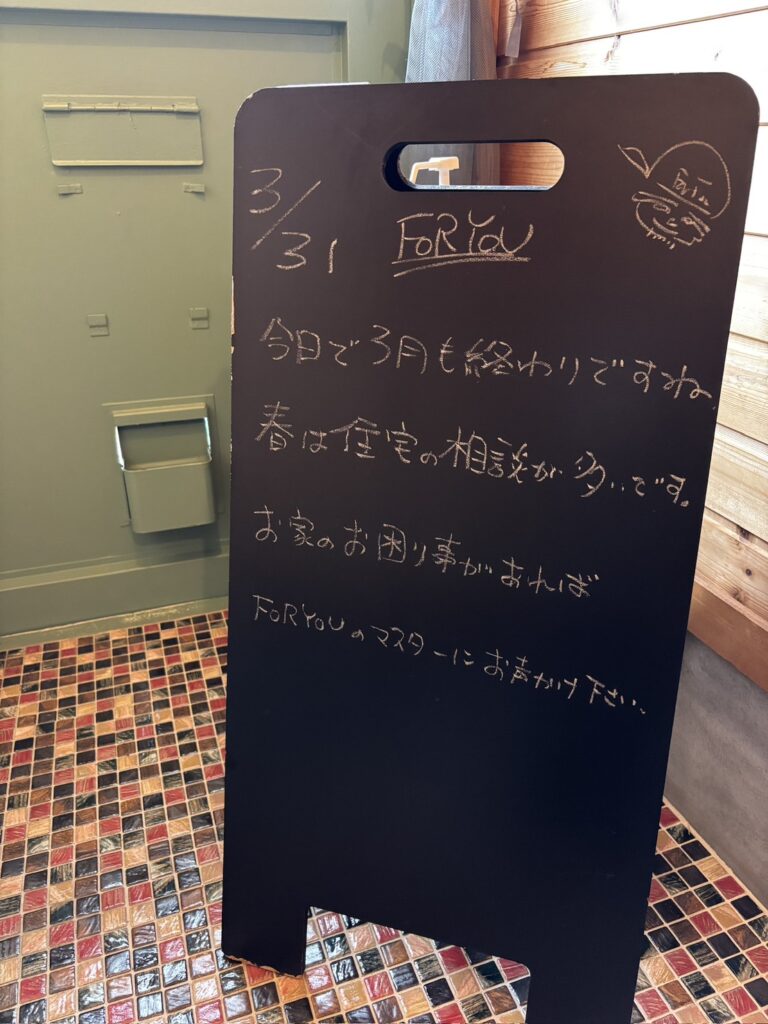 3/31
FOR YOU
今日で3月も終わりですね。
春は住宅の相談が多いです。
お家のお困り事があれば
FOR YOUのマスターにお声かけ下さい。